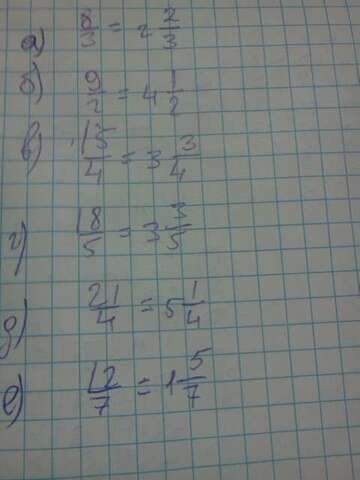 а) 8/3 = 2 2/3
б) 9/2 = 4 1/2
в) 15/4 = 3 3/4
г) 18/5 = 3 3/5
д) 21/4 = 5 1/4
е) 12/7 = 1 5/7